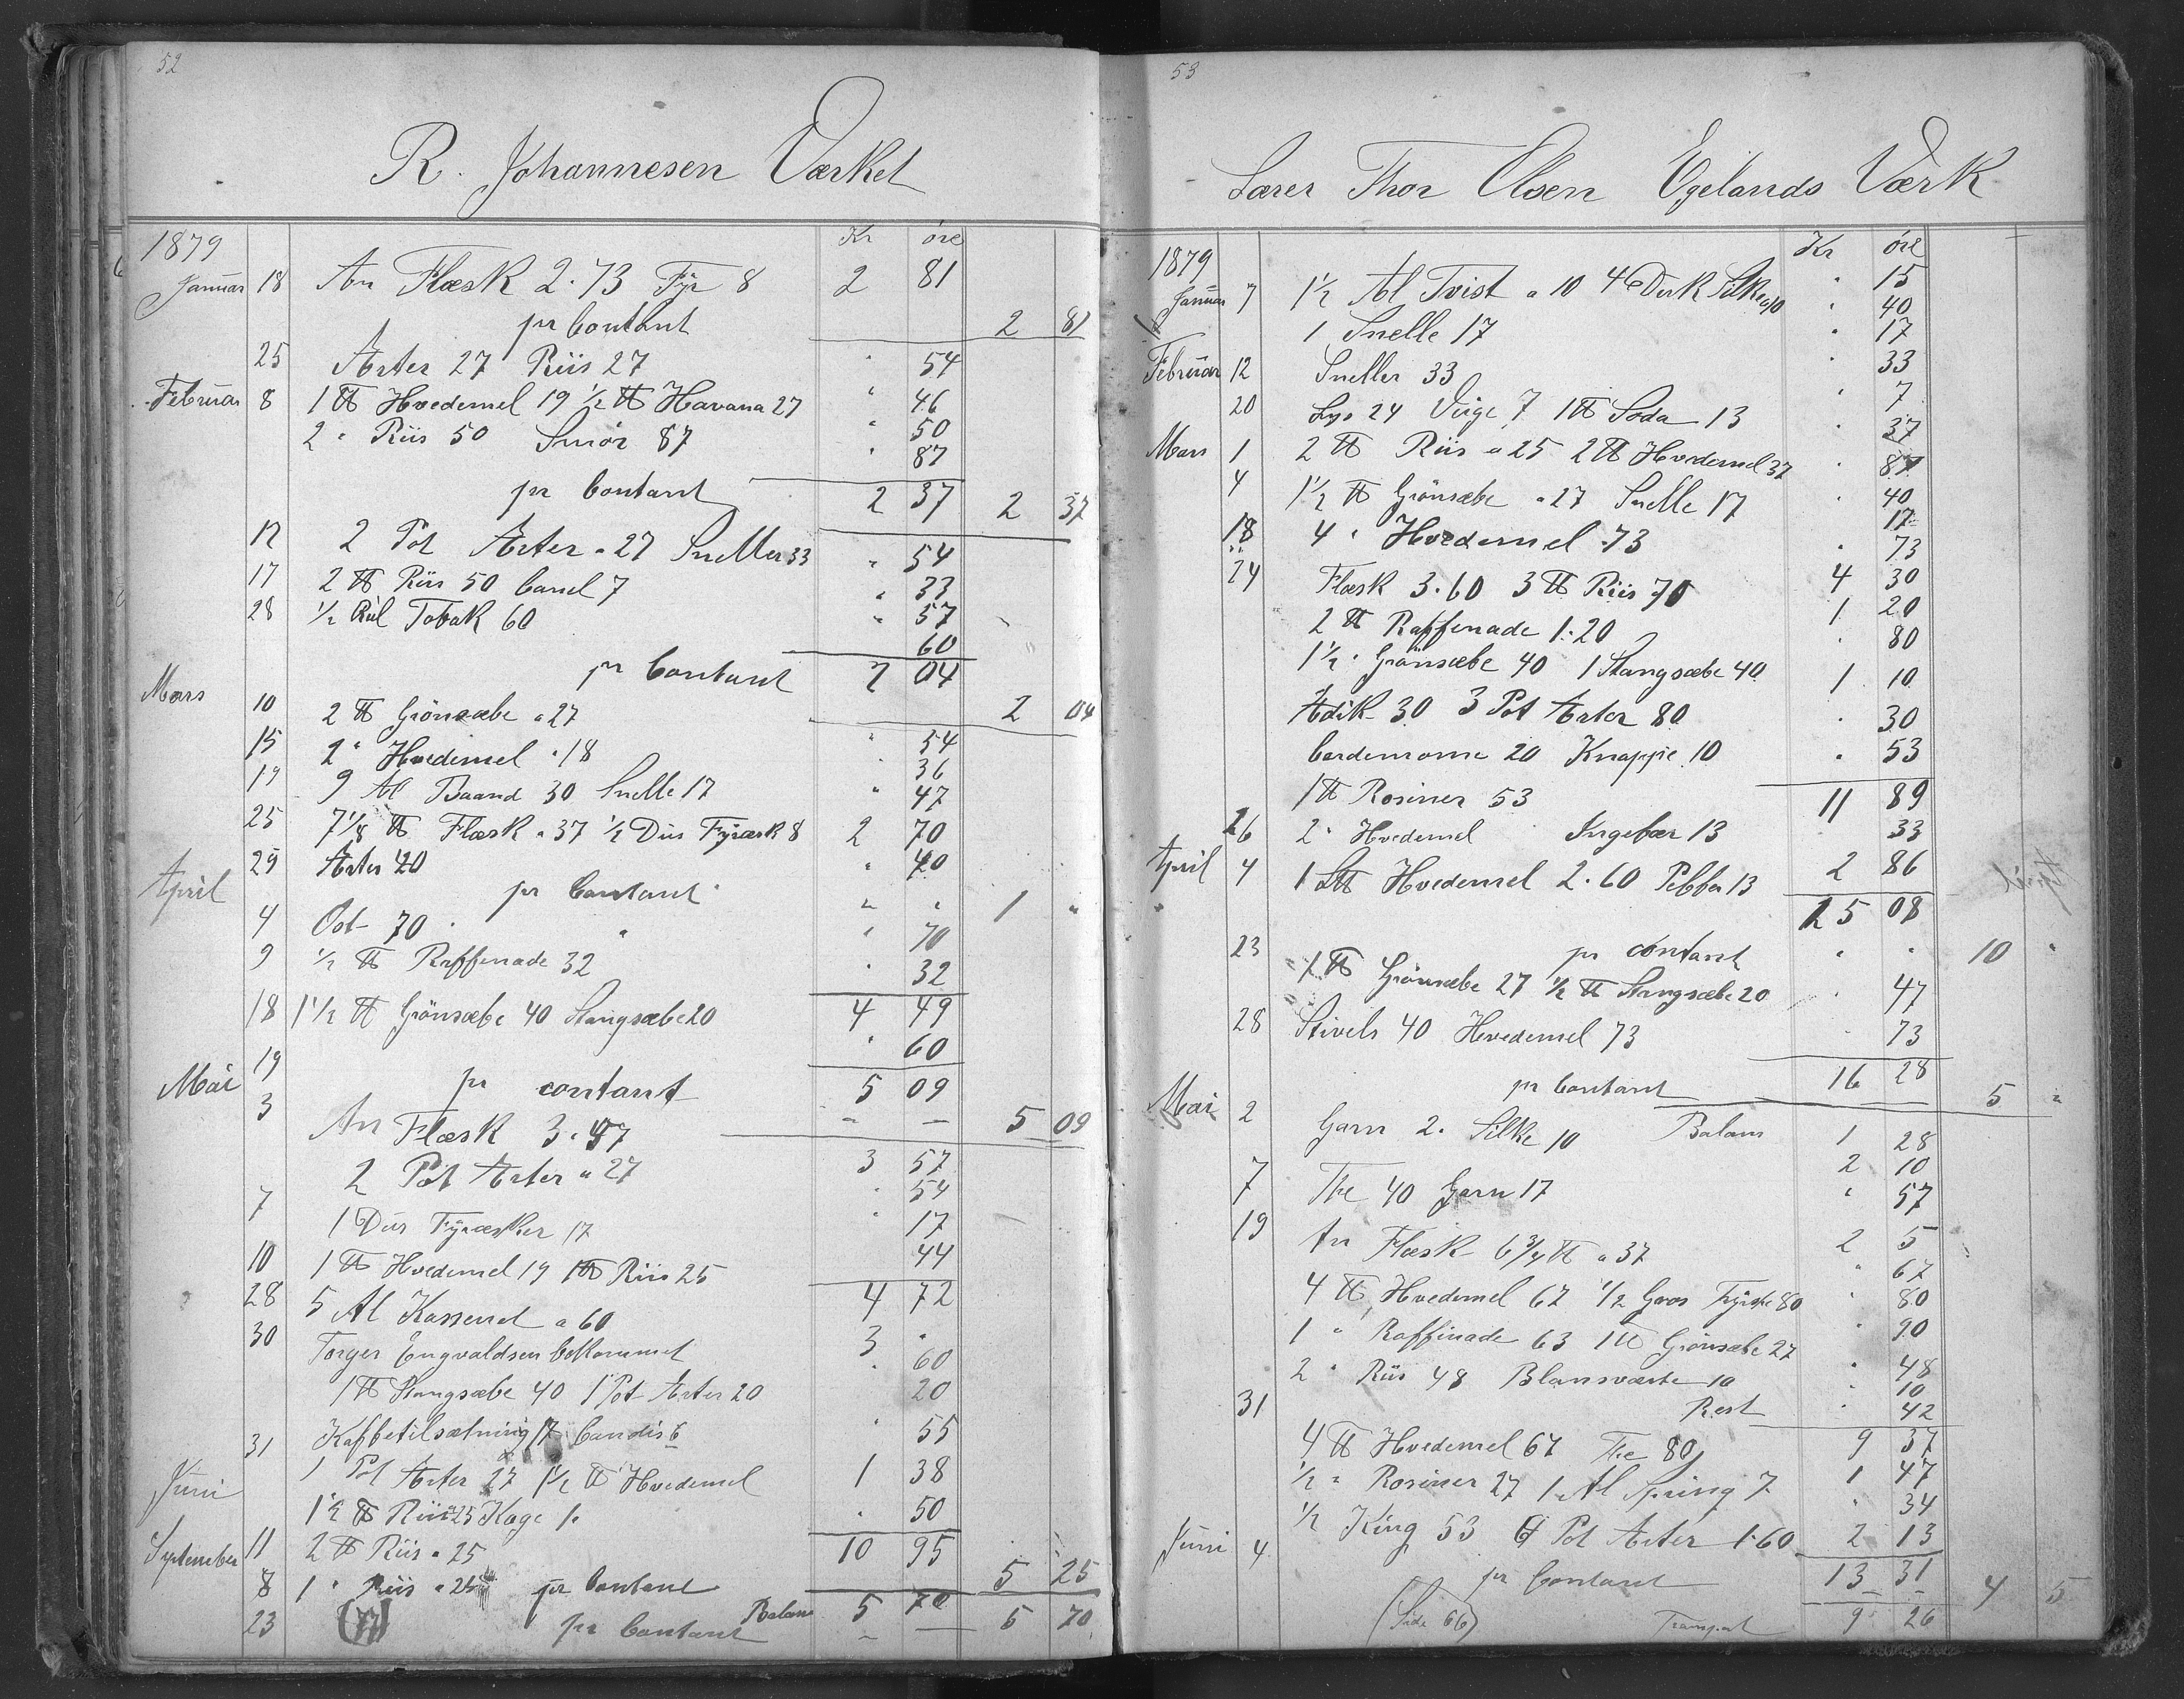 52
R. Johannesen Værket
1879 Kr øre
Januar 18 An Flæsk 2.73 Fyr 8 2 81
pr Contant 2 81
25 Arter 27 Riis 27 " 54
Februar 8 1 ℔ Hvedemel 19 ½ ℔ Havana 27 " 46
2 " Riis 50 Smör 87 " 50
" 87
pr Contant 2 37 2 37
12 2 Pot Arter a 27 Sneller 33 " 54
17 2 ℔ Riis 50 Canel 7 " 33
28 ½ Rul Tobak 60 " 57
60
pr Contant 2 04
Mars 10 2 ℔ Grönsæbe a 27 2 04
" 54
15 2 " Hvedemel a 18 " 36
19 9 Al Baand 30 Snelle 17 " 47
25 7⅛ ℔ Flæsk a 37 ½ Dus Fyræsk 8 2 70
29 Arter 40 " 40
April pr Contant " " 1 "
4 Ost 70 " 70
9 ½ ℔ Raffenade 32 " 32
18 1½ ℔ Grönsæbe 40 Stangsæbe 20 4 49
" 60
19 pr contant 5 09
Mai 3 An Flæsk 3.57 — — 5 09
2 Pot Arter a 27 3 57
" 54
7 1 Dus Fyræsker 17 " 17
10 1 ℔ Hvedemel 19 1 ℔ Riis 25 44
28 5 Al Kassenet a 60 4 72
30 Torger Engvaldsen bekommet 3 "
" 60
1 ℔ Stangsæbe 40 1 Pot Arter 20 20
Kaffetilsætning 17 Candis 6 " 55
31 1 Pot Arter 27 1½ ℔ Hvedemel 1 38
Juni 1½ ℔ Riis a 25 Kage 1. " 50
11 2 ℔ Riis a 25 10 95
September 8 1 " Riis a 25 pr Contant 5 25
Balans 5 70
23 (77) pr Contant — — 5 70
53
Lærer Thor Olsen Egelands Værk
1879 Kr øre
Januar 7 1½ Al Tvist a 10 4 Duk Silke a 10 " 15
" 40
1 Snelle 17 " 17
Februar 12 Sneller 33 " 33
20 Lys 24 Vige 7 1 ℔ Soda 13 " 7
" 37
Mars 1 2 ℔ Riis a 25 2 ℔ Hvedemel 37 " 87
4 1½ ℔ Grönsæbe a 27 Snelle 17 " 40
17
18 4 " Hvedemel 73 " 73
24 Flæsk 3.60 3 ℔ Riis 70 4 30
2 ℔ Raffenade 1.20 1 20
1½ " Grönsæbe 40 1 Stangsæbe 40 " 80
Ædik 30 3 Pot Arter 80 1 10
Cardemome 20 Knappe 10 " 30
1 ℔ Rosiner 53 " 53
11 89
26 2 " Hvedemel Ingefær 13 33
April 4 1 L℔ Hvedemel 2.60 Pebber 13 2 86
15 08
pr contant " " 10 "
23 1 ℔ Grönsæbe 27 ½ ℔ Stangsæbe 20 " 47
28 Stivels 40 Hvedemel 73 " 73
16 28
pr Contant 5 "
Mai 2 Garn 2. Silke 10 Balans 1 28
2 10
7 The 40 Garn 17 " 57
19 An Flæsk 6¾ ℔ a 37 2 5
4 ℔ Hvedemel 67 ½ Gros Fyrstke 80 " 67
" 80
1 " Raffinade 63 1 ℔ Grönsæbe 27 " 90
2 " Riis 48 Blansværte 10 " 48
" 10
31 Rest " 42
4 ℔ Hvedemel 67 The 80 9 37
1 47
½ " Rosiner 27 1 Al Spring 7 " 34
½ King 53 6 Pot Arter 1.60 2 13
Juni 4 pr Contant 13 31
— — 4 5
(Side 66) Transport 9 26